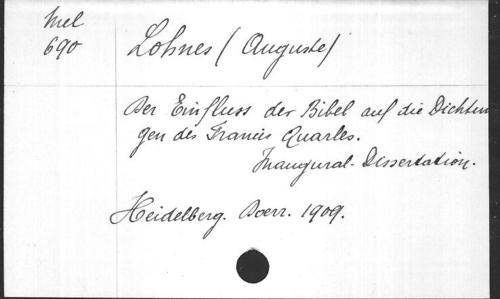 Mel
690
Lohnes (Auguste)
Der Einfluss der Bibel auf die Dichtun
gen des Francis Quarles.
Inaugural-Dissertation.
Heidelberg. Doerr. 1909.